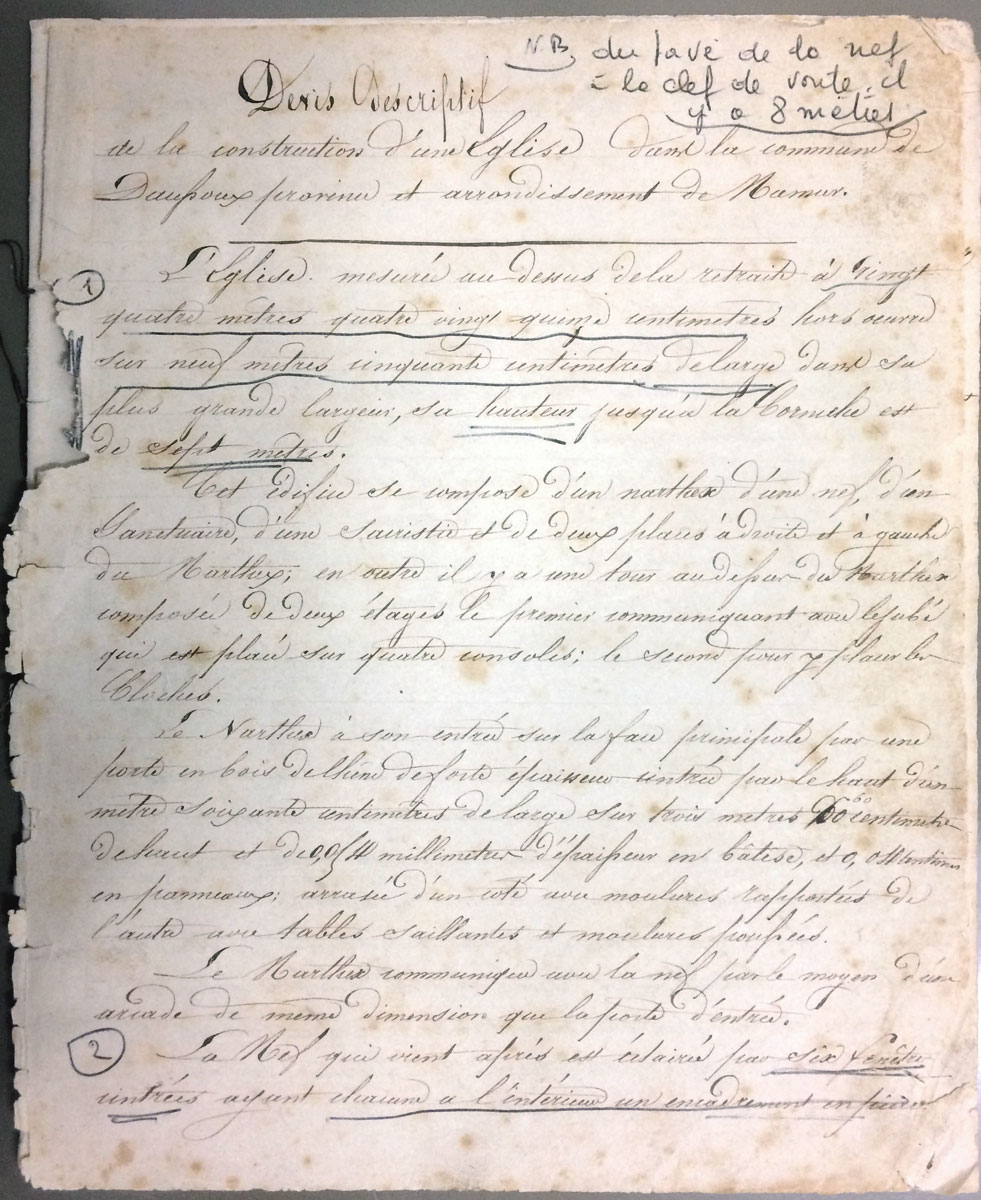 N.B. du pavé de la nef
à la clef de voute, il
y a 8 mètres
Devis Descriptif
de la construction d'une Eglise dans la commune de
Daussoux province et arrondissement de Namur.
1
L'Eglise mesurée au dessus de la retraite à vingt
quatre mètres quatre vingt quinze centimetres hors oeuvre
sur neuf mètres cinquante centimetres de large dans sa
plus grande largeur, sa hauteur jusqu'a la Corniche est
de sept mètres.
Cet édifice se compose d'un narthex d'une nef, d'un
Sanctuaire, d'une sacristie et de deux places à droite et à gauche
du Narthex; en outre il y a une tour au dessus du Narthex
composée de deux étages le premier communiquant avec le jubé
qui est placé sur quatre consoles; le second pour y placer les
Cloches.
Le Narthex à son entrée sur la face principale par une
porte en bois de chêne de forte épaisseur cintrée par le haut d'un
mètre soixante centimetres de large sur trois metres 60 centimetres
de haut et de 0,054 millimetres d'épaisseur en bâtise, et 0,04 centimes
en panneaux; arrasée d'un coté avec moulures rapportées de
l'autre avec tables saillantes et moulures poussées.
Le Narthex communique avec la nef par le moyen d'une
arcade de même dimension que la porte d'entrée.
2
La Nef qui vient après est éclairée par six fenêtres
cintrées ayant chacune a l'intérieur un encadrement en pierre